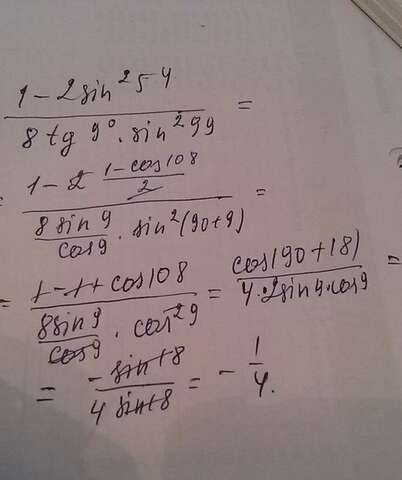 1 - 2sin²54
8 tg 9° · sin²99 =
= 1 - 2 1-cos108
2
8 sin 9
cos 9 · sin²(90+9) =
= 1 - 1 + cos108
8sin9
cos9 · cos²9 = cos(90+18)
4·2sin9·cos9 =
= -sin18
4 sin18 = - 1
4.